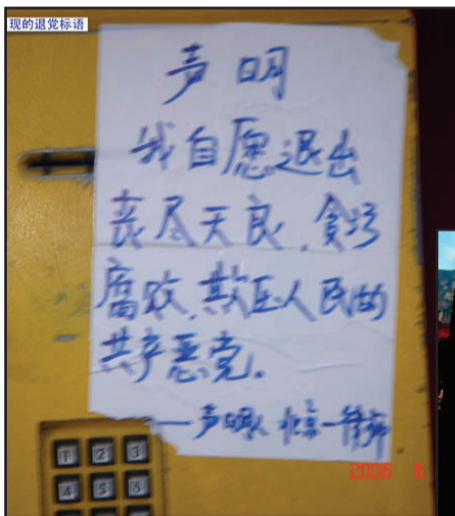 现的退党标语
声明
我自愿退出
丧尽天良、贪污
腐败、欺压人民的
共产恶党。
——声明人 北京一律师
1 2 3
4 5 6
2006 6